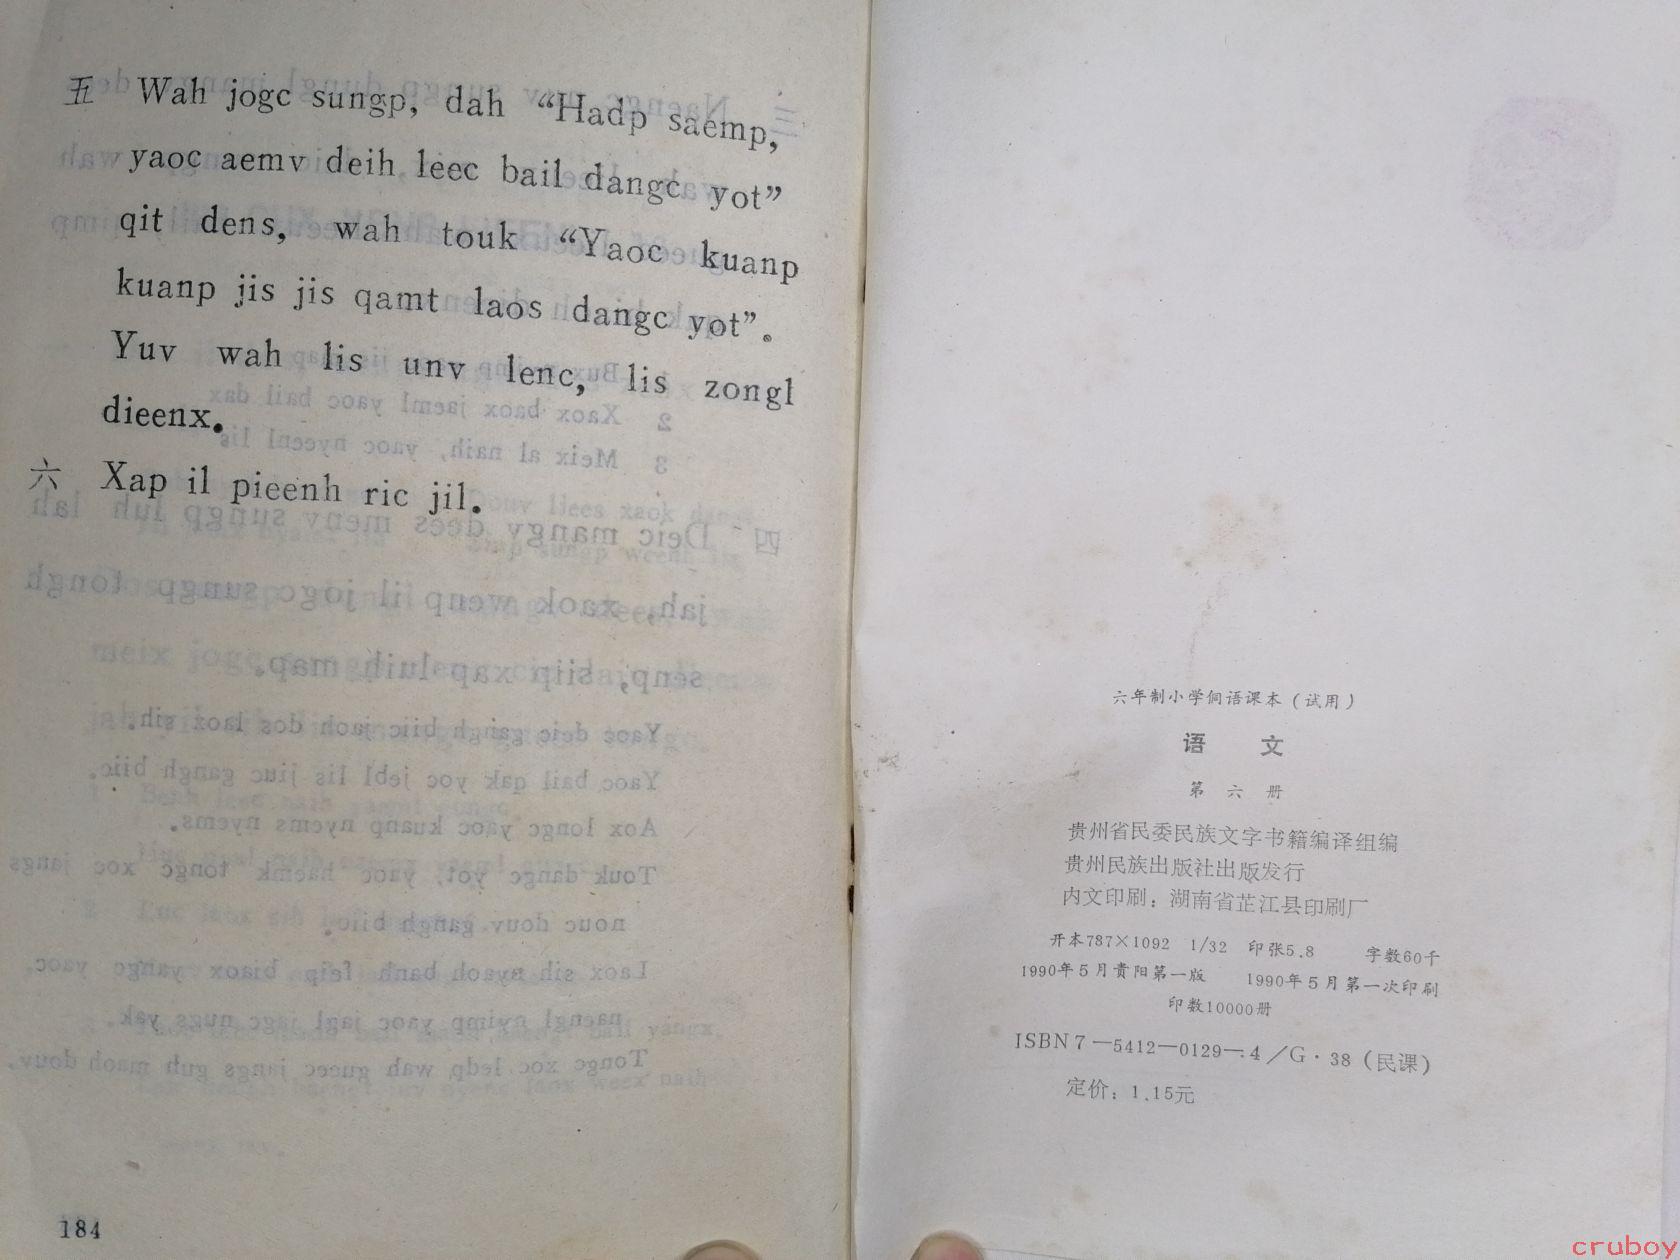 五 Wah jogc sungp, dah “Hadp saemp,
yaoc aemv deih leec bail dangc yot”
qit dens, wah touk “Yaoc kuanp
kuanp jis jis qamt laos dangc yot”。
Yuv wah lis unv lenc, lis zongl
dieenx.
六 Xap il pieenh ric jil.
184
六年制小学侗语课本(试用)
语 文
第 六 册
贵州省民委民族文字书籍编译组编
贵州民族出版社出版发行
内文印刷：湖南省芷江县印刷厂
开本787×1092 1/32 印张5.8 字数60千
1990年5月貴阳第一版 1990年5月第一次印刷
印数10000册
ISBN 7—5412—0129—4/G·38(民课)
定价：1.15元
cruboy